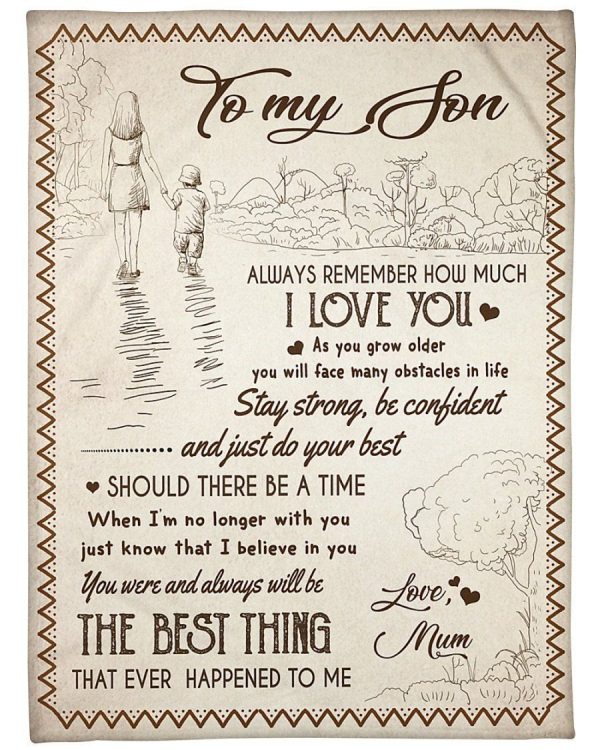 To my Son
ALWAYS REMEMBER HOW MUCH
I LOVE YOU
As you grow older
you will face many obstacles in life
Stay strong, be confident
and just do your best
SHOULD THERE BE A TIME
When I'm no longer with you
just know that I believe in you
You were and always will be
THE BEST THING
THAT EVER HAPPENED TO ME
Love,
Mum